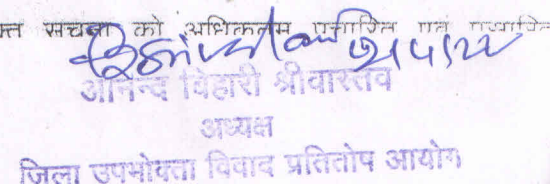 सूचना को अधिकतम प्रसारित एवं
आनन्द बिहारी श्रीवास्तव
अध्यक्ष
जिला उपभोक्ता विवाद प्रतितोष आयोग